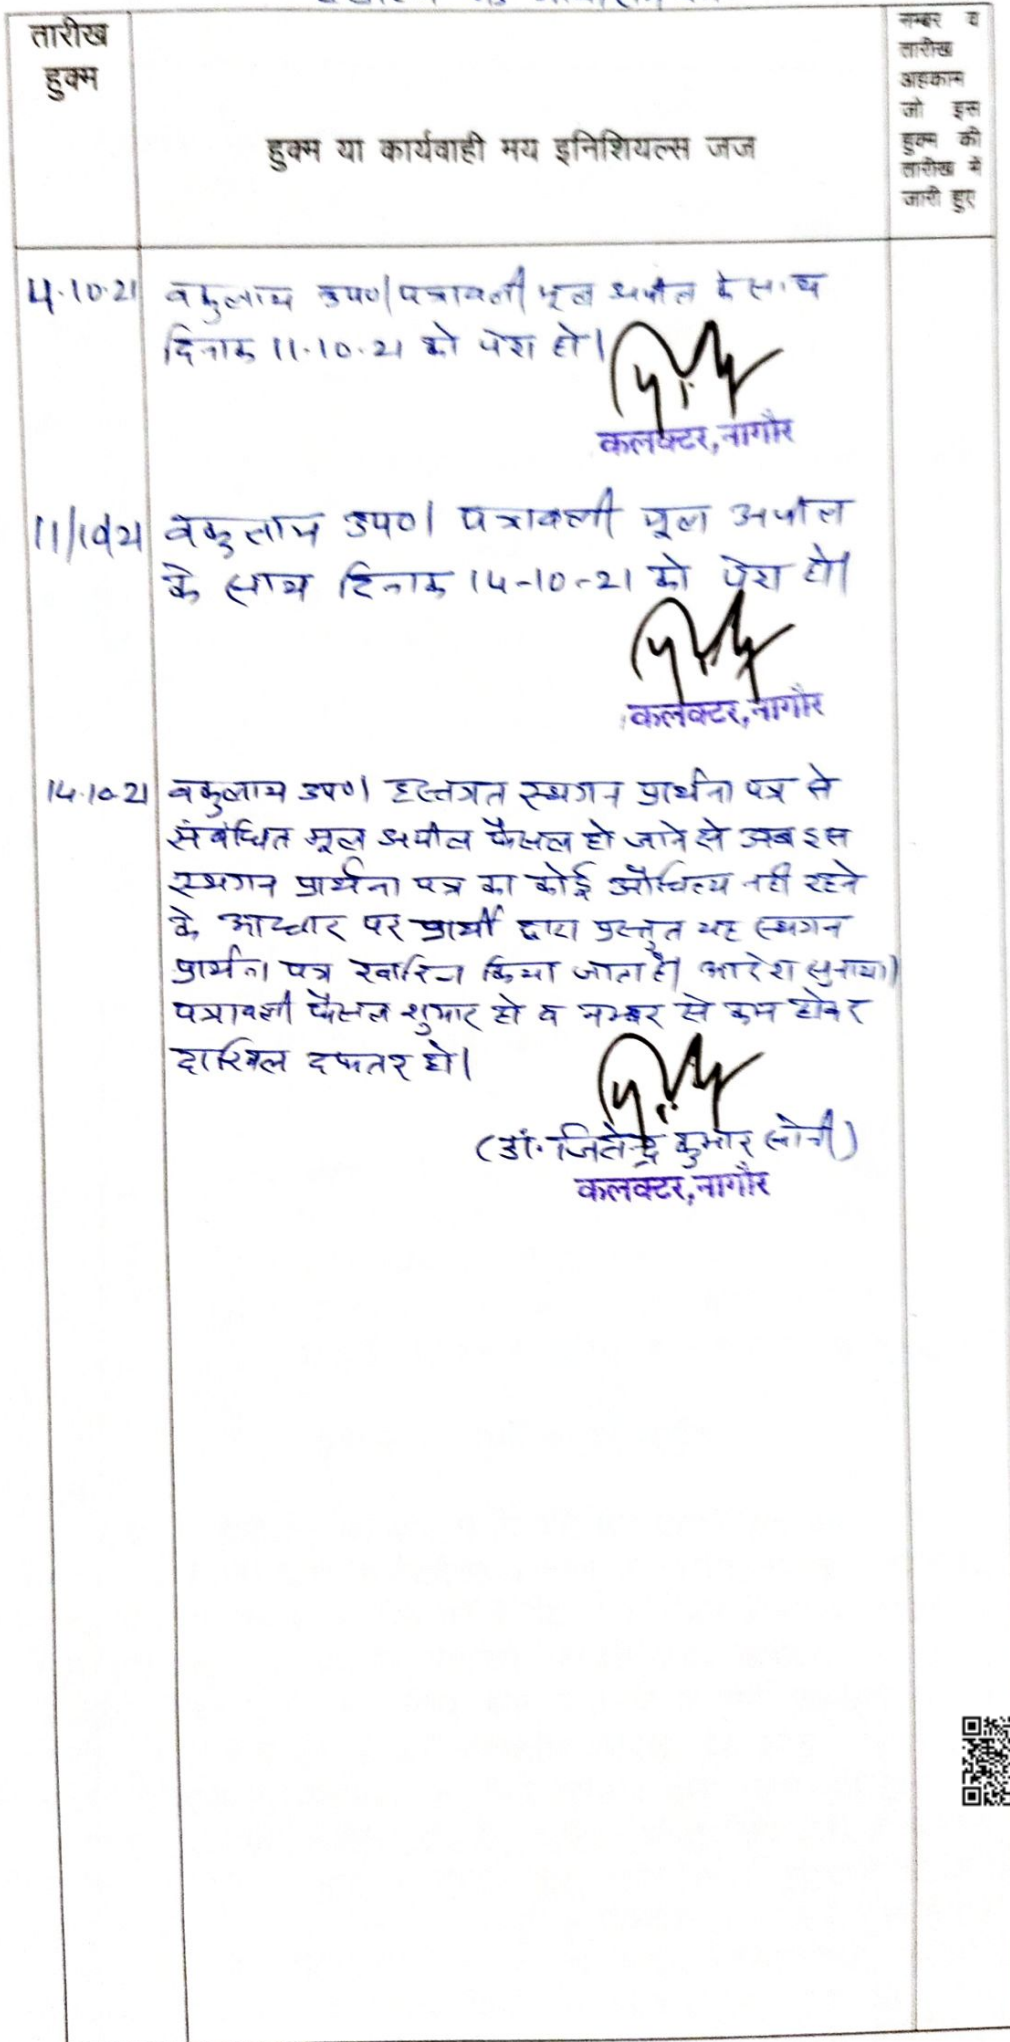 तारीख
हुक्म
हुक्म या कार्यवाही मय इनिशियल्स जज
नम्बर व
तारीख
अहकाम
जो इस
हुक्म की
तारीख में
जारी हुए
4.10.21 वकुलाय उप०। पत्रावली मूल अपील के साथ
दिनांक 11.10.21 को पेश हो।
कलक्टर,नागौर
11/10/21 वकुलाय उप०। पत्रावली मूल अपील
के साथ दिनांक 14-10-21 को पेश हो।
कलक्टर,नागौर
14.10.21 वकुलाय उप०। हस्तगत स्थगन प्रार्थना पत्र से
संबंधित मूल अपील फैसल हो जाने से अब इस
स्थगन प्रार्थना पत्र का कोई औचित्य नही रहने
के आधार पर प्रार्थी द्वारा प्रस्तुत यह स्थगन
प्रार्थना पत्र खारिज किया जाता है। आदेश सुनाया।
पत्रावली फैसल शुमार हो व नम्बर से कम होकर
दाखिल दफ्तर हो।
(डॉ. जितेन्द्र कुमार सोनी)
कलक्टर,नागौर